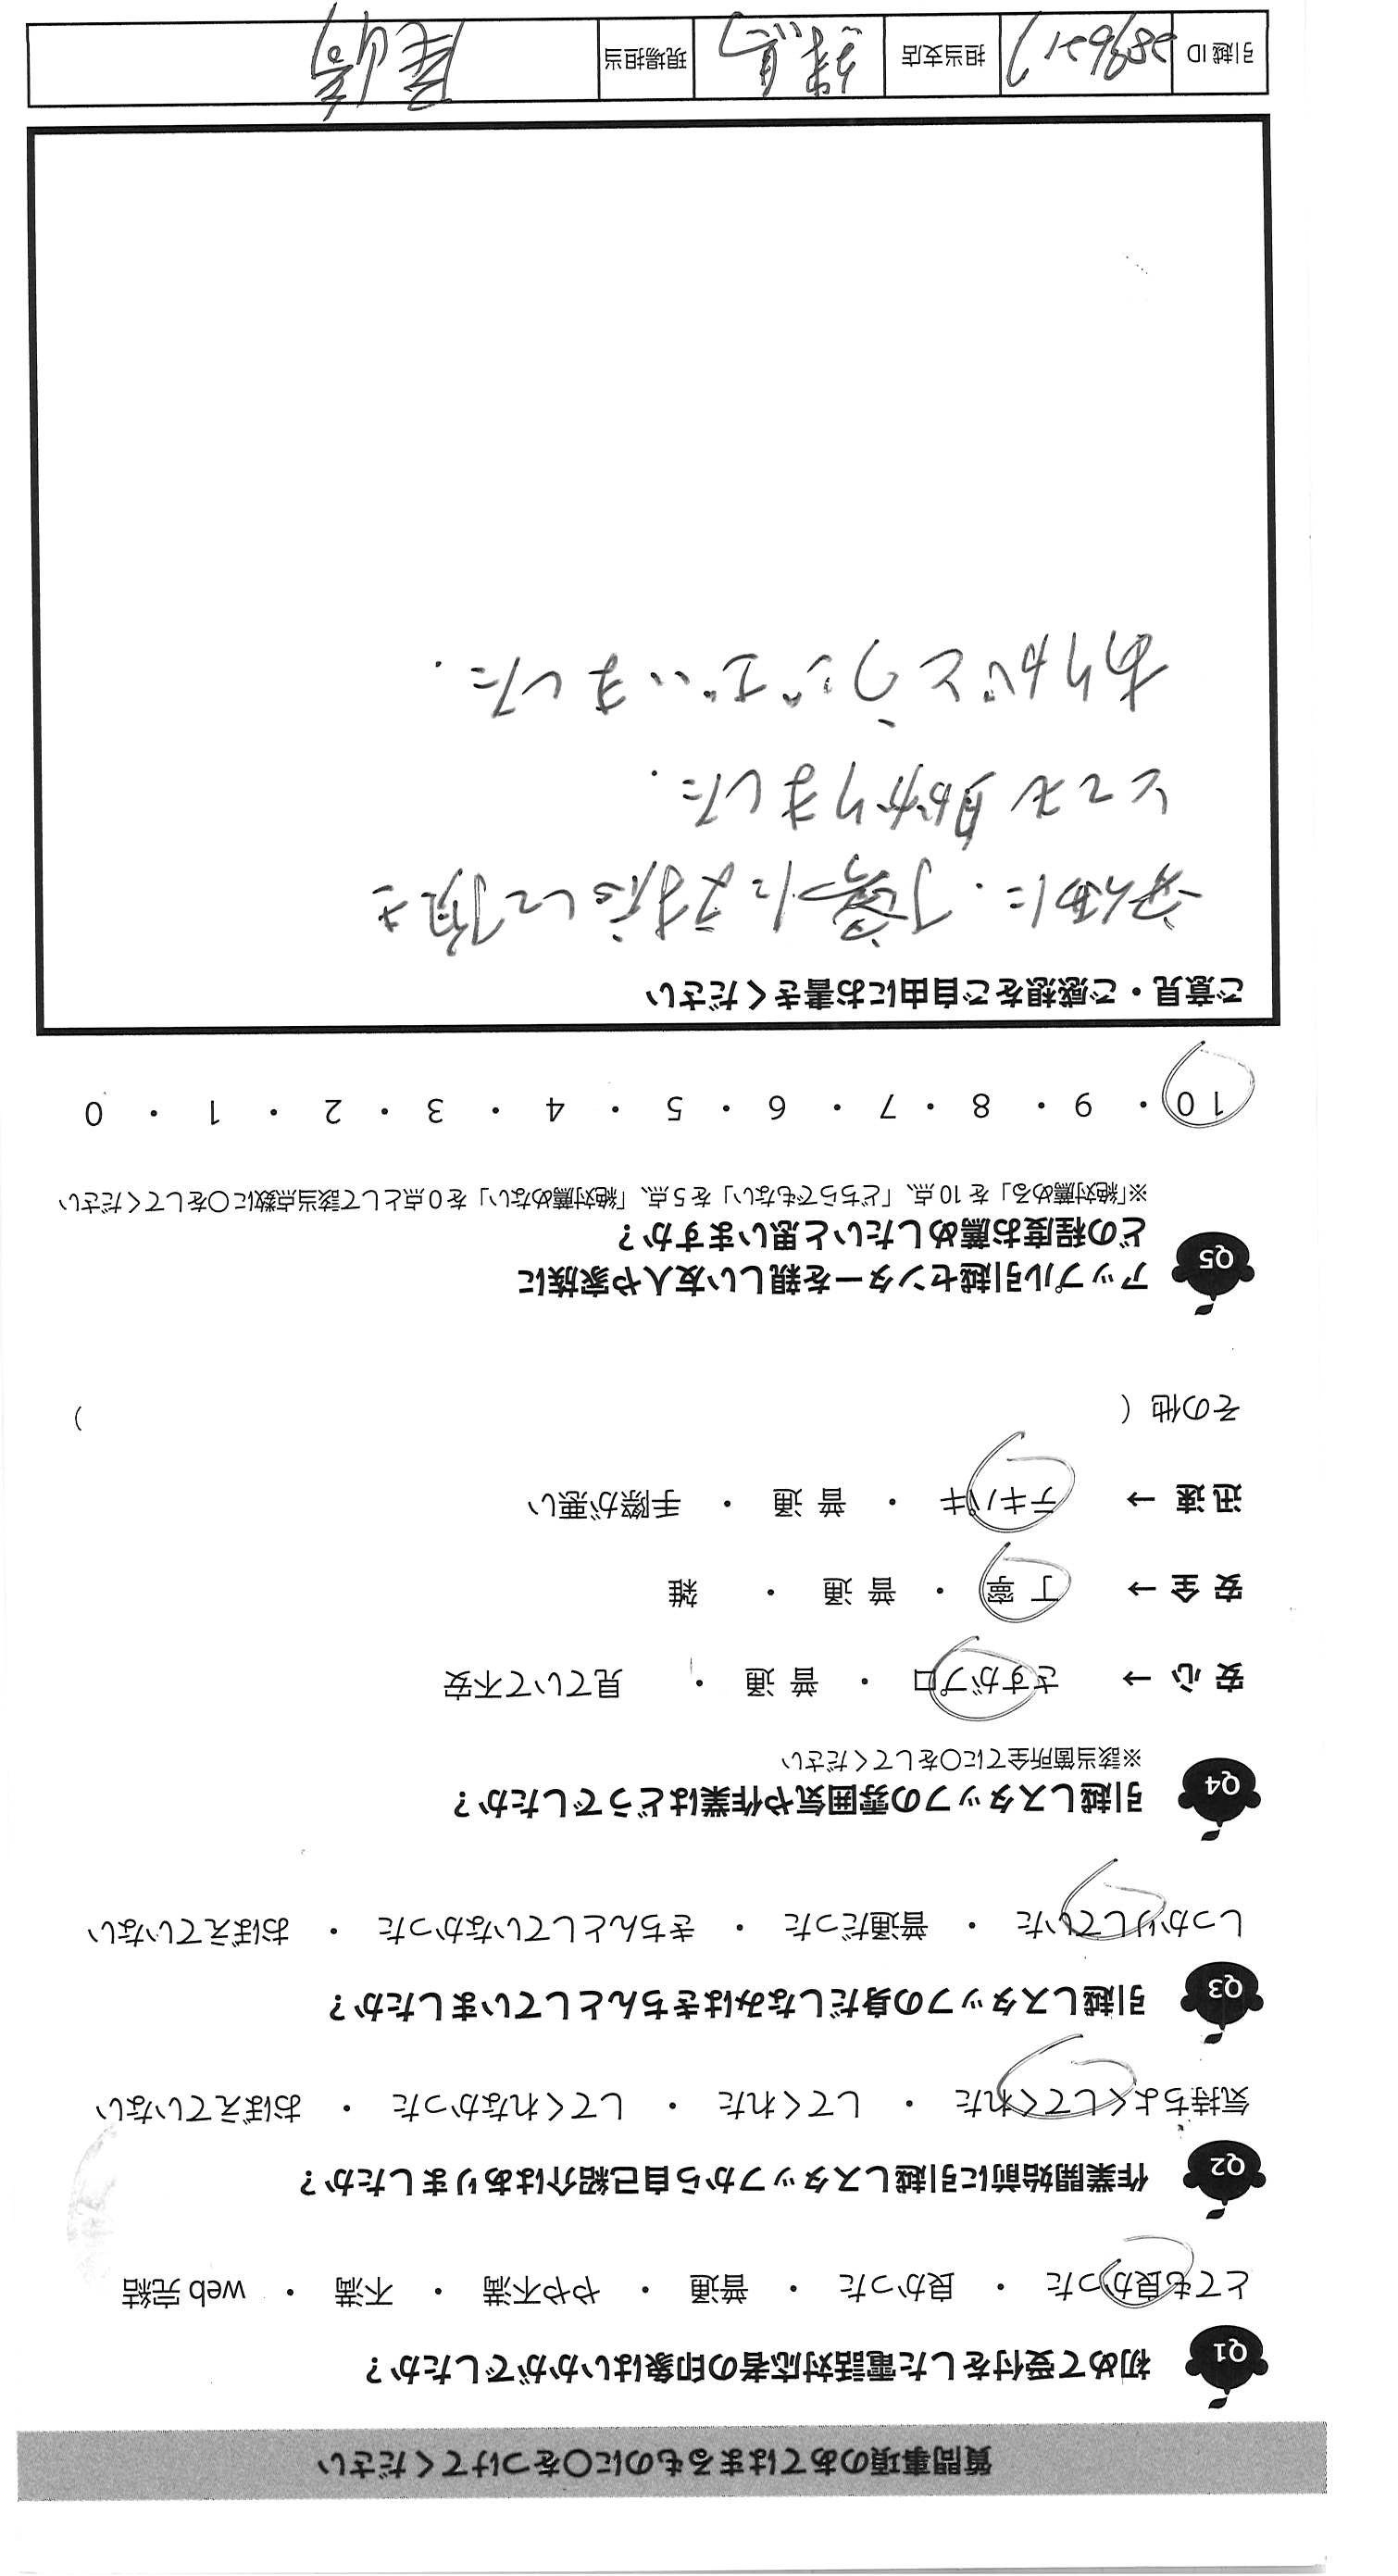 質問事項のあてはまるものに○をつけてください
Q1 初めて受付をした電話対応者の印象はいかがでしたか？
とても良かった ・ 良かった ・ 普通 ・ やや不満 ・ 不満 ・ web 完結
Q2 作業開始前に引越しスタッフから自己紹介はありましたか？
気持ちよくしてくれた ・ してくれた ・ してくれなかった ・ おぼえていない
Q3 引越しスタッフの身だしなみはきちんとしていましたか？
しっかりしていた ・ 普通だった ・ きちんとしていなかった ・ おぼえていない
Q4 引越しスタッフの雰囲気や作業はどうでしたか？
※該当箇所全てに○をしてください
安 心 → さすがプロ ・ 普 通 ・ 見ていて不安
安 全 → 丁 寧 ・ 普 通 ・ 雑
迅 速 → テキパキ ・ 普 通 ・ 手際が悪い
その他（ ）
Q5 アップル引越センターを親しい友人や家族に
どの程度お薦めしたいと思いますか？
※「絶対薦める」を 10 点、「どちらでもない」を 5 点、「絶対薦めない」を 0 点として該当点数に○をしてください
10 ・ 9 ・ 8 ・ 7 ・ 6 ・ 5 ・ 4 ・ 3 ・ 2 ・ 1 ・ 0
ご意見・ご感想をご自由にお書きください
丁寧に対応して頂き
とても助かりました.
ありがとうございました.
引越 ID 担当支店 練馬 現場担当 尾崎